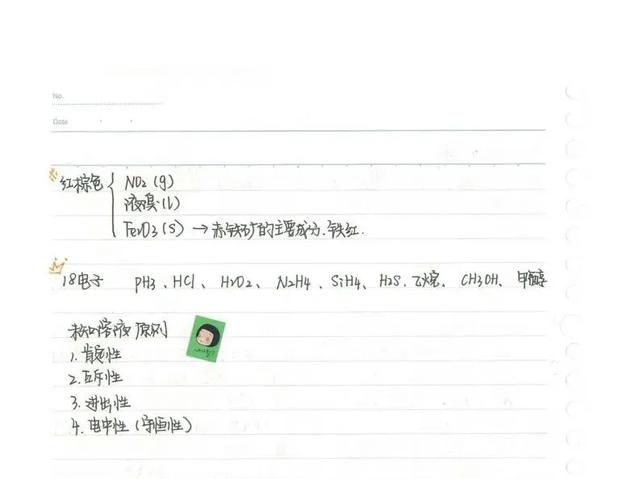 No.
Date
红棕色 { NO2 (g)
液溴 (l)
Fe2O3 (s) → 赤铁矿的主要成分.铁红.
18电子 PH3、HCl、H2O2、N2H4、SiH4、H2S、乙烷、CH3OH、甲醇
未知溶液原则
1. 肯定性
2. 互斥性
3. 进出性
4. 电中性 (守恒性)